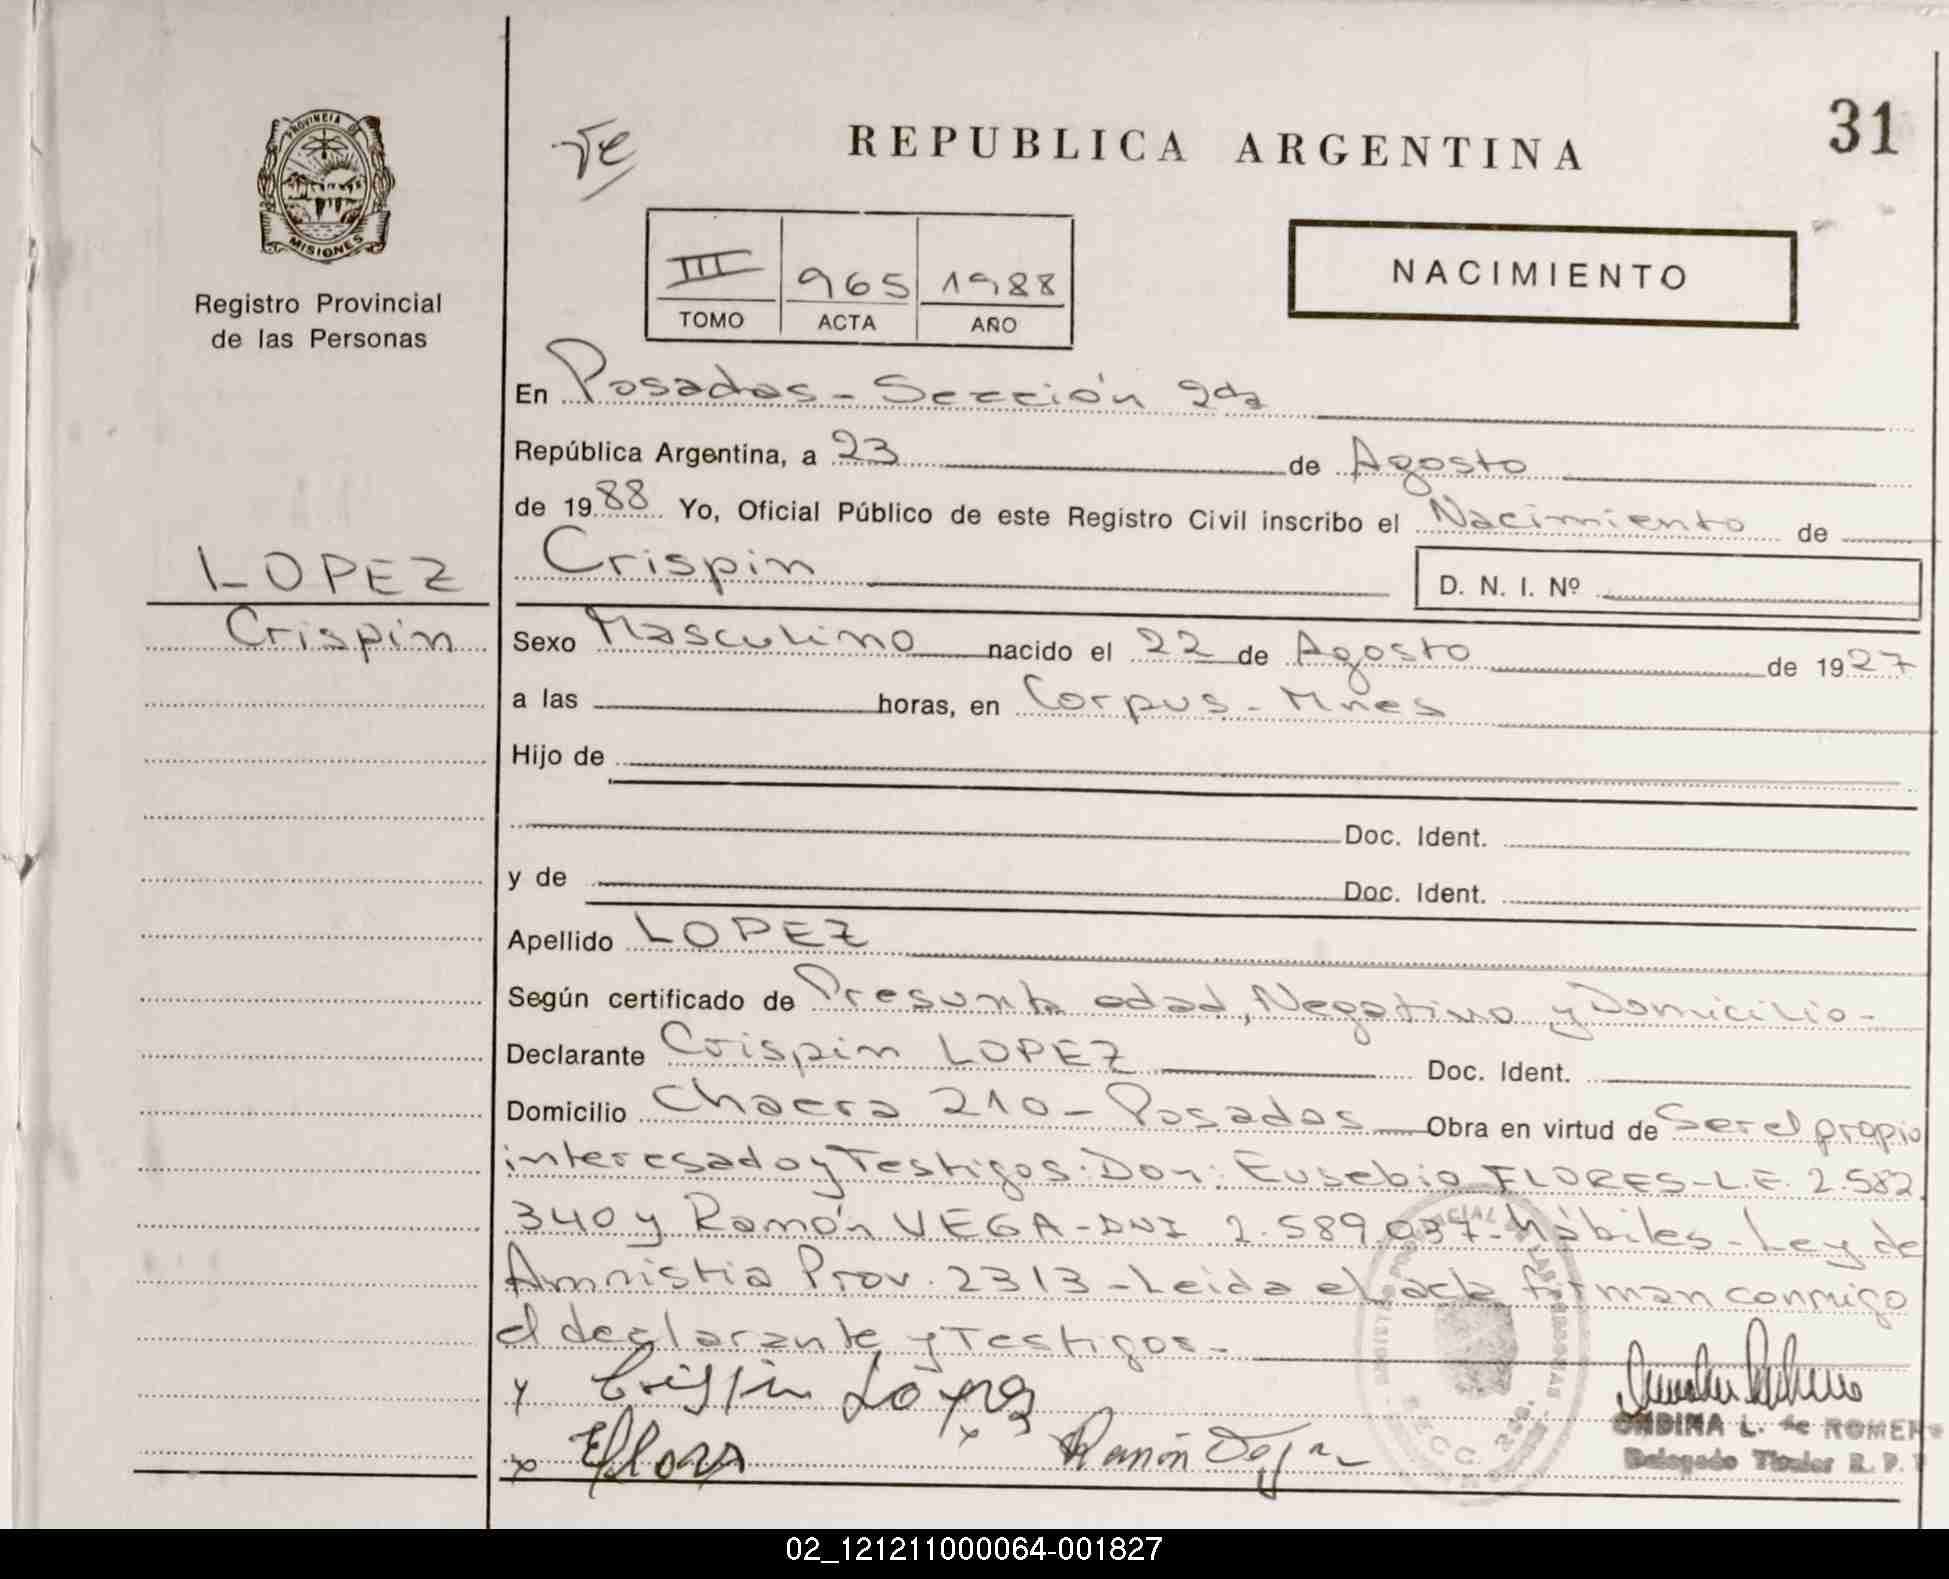 PROVINCIA DE
MISIONES
Registro Provincial
de las Personas
LOPEZ
Crispin
REPUBLICA ARGENTINA
31
III 965 1988
TOMO ACTA AÑO
NACIMIENTO
En Posadas - Sección 2da
República Argentina, a 23 de Agosto
de 1988 Yo, Oficial Público de este Registro Civil inscribo el Nacimiento de
Crispin D. N. I. Nº
Sexo Masculino nacido el 22 de Agosto de 1927
a las horas, en Corpus - Mnes
Hijo de
Doc. Ident.
y de Doc. Ident.
Apellido LOPEZ
Según certificado de Presunta edad, Negativo y Domicilio -
Declarante Crispin LOPEZ Doc. Ident.
Domicilio Chacra 210 - Posadas Obra en virtud de Ser el propio
interesado y Testigos: Don: Eusebio FLORES - L.E. 2.582.
340 y Ramón VEGA - DNI 2.589.037 - hábiles - Ley de
Amnistia Prov. 2313 - Leida el acta firman conmigo
el declarante y Testigos -
Crispin López
EFlores Ramón Vega
ONDINA L. de ROMERO
Delegado Titular R. P.
SECC. 2da.
02_121211000064-001827